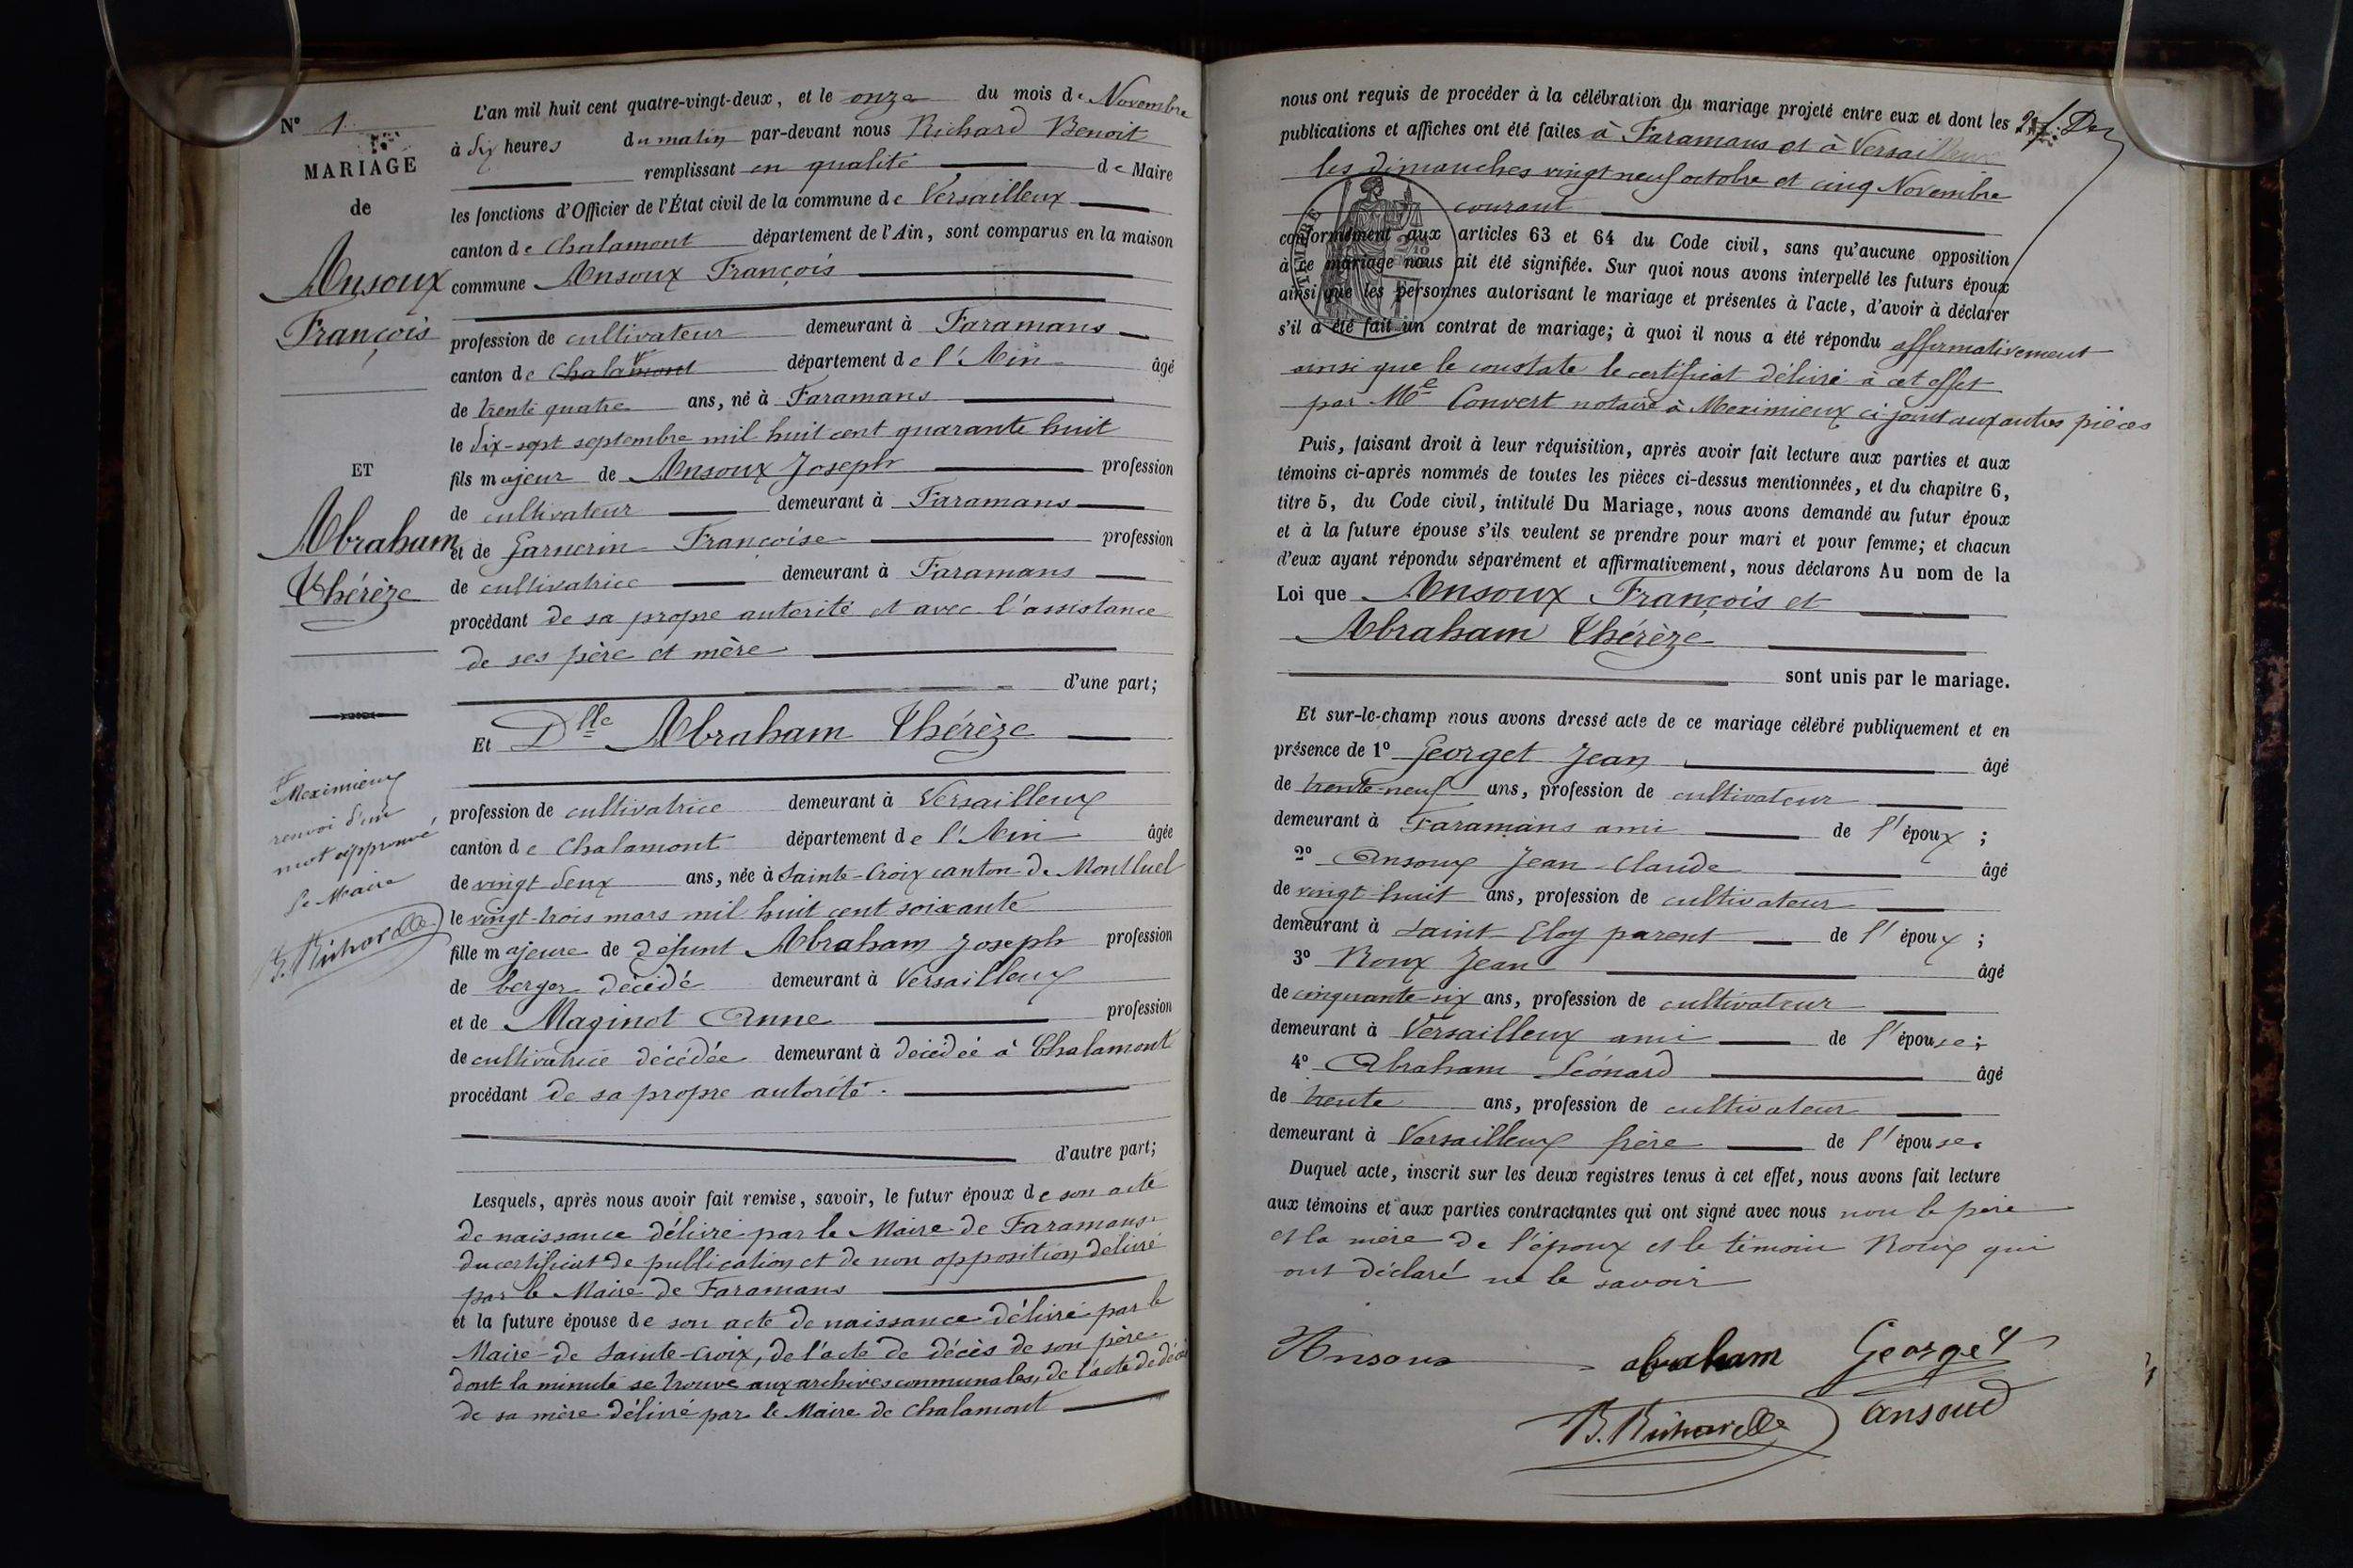 N° 1
MARIAGE
de
Ansoux
François
ET
Abraham
Thérèze
Meximieux
renvoi d'un
mot approuvé
Le Maire
B. Richard
L'an mil huit cent quatre-vingt-deux, et le onze du mois de Novembre
à dix heures du matin par-devant nous Richard Benoit
remplissant en qualité de Maire
les fonctions d'Officier de l'État civil de la commune de Versailleux
canton de Chalamont département de l'Ain, sont comparus en la maison
commune Ansoux François
profession de cultivateur demeurant à Faramans
canton de Chalamont département de l'Ain âgé
de trente quatre ans, né à Faramans
le dix-sept septembre mil huit cent quarante huit
fils majeur de Ansoux Joseph profession
de cultivateur demeurant à Faramans
et de Garnerin Françoise profession
de cultivatrice demeurant à Faramans
procédant de sa propre autorité et avec l'assistance
de ses père et mère
d'une part;
Et Dlle Abraham Thérèze
profession de cultivatrice demeurant à Versailleux
canton de Chalamont département de l'Ain âgée
de vingt deux ans, née à Sainte-Croix canton de Montluel
le vingt-trois mars mil huit cent soixante
fille majeure de défunt Abraham Joseph profession
de berger décédé demeurant à Versailleux
et de Maginot Anne profession
de cultivatrice décédée demeurant à décédée à Chalamont
procédant de sa propre autorité.
d'autre part;
Lesquels, après nous avoir fait remise, savoir, le futur époux de son acte
de naissance délivré par le Maire de Faramans
du certificat de publication et de non opposition délivré
par le Maire de Faramans
et la future épouse de son acte de naissance délivré par le
Maire de Sainte-Croix, de l'acte de décès de son père
dont la minute se trouve aux archives communales, de l'acte de décès
de sa mère délivré par le Maire de Chalamont
nous ont requis de procéder à la célébration du mariage projeté entre eux et dont les
publications et affiches ont été faites à Faramans et à Versailleux
les dimanches vingt neuf octobre et cinq Novembre
courant
conformément aux articles 63 et 64 du Code civil, sans qu'aucune opposition
à ce mariage nous ait été signifiée. Sur quoi nous avons interpellé les futurs époux
ainsi que les personnes autorisant le mariage et présentes à l'acte, d'avoir à déclarer
s'il a été fait un contrat de mariage; à quoi il nous a été répondu affirmativement
ainsi que le constate le certificat délivré à cet effet
par Me Convert notaire à Meximieux ci joint aux autres pièces
Puis, faisant droit à leur réquisition, après avoir fait lecture aux parties et aux
témoins ci-après nommés de toutes les pièces ci-dessus mentionnées, et du chapitre 6,
titre 5, du Code civil, intitulé Du Mariage, nous avons demandé au futur époux
et à la future épouse s'ils veulent se prendre pour mari et pour femme; et chacun
d'eux ayant répondu séparément et affirmativement, nous déclarons Au nom de la
Loi que Ansoux François et
Abraham Thérèze
sont unis par le mariage.
Et sur-le-champ nous avons dressé acte de ce mariage célébré publiquement et en
présence de 1° Georget Jean âgé
de trente-neuf ans, profession de cultivateur
demeurant à Faramans ami de l'époux ;
2° Ansoux Jean Claude âgé
de vingt huit ans, profession de cultivateur
demeurant à Saint-Eloy parent de l'époux ;
3° Roux Jean âgé
de cinquante-six ans, profession de cultivateur
demeurant à Versailleux ami de l'épouse;
4° Abraham Léonard âgé
de trente ans, profession de cultivateur
demeurant à Versailleux frère de l'épouse.
Duquel acte, inscrit sur les deux registres tenus à cet effet, nous avons fait lecture
aux témoins et aux parties contractantes qui ont signé avec nous non le père
et la mère de l'époux et le témoin Roux qui
ont déclaré ne le savoir
Ansoux abraham Georget
B. Richard ansoud